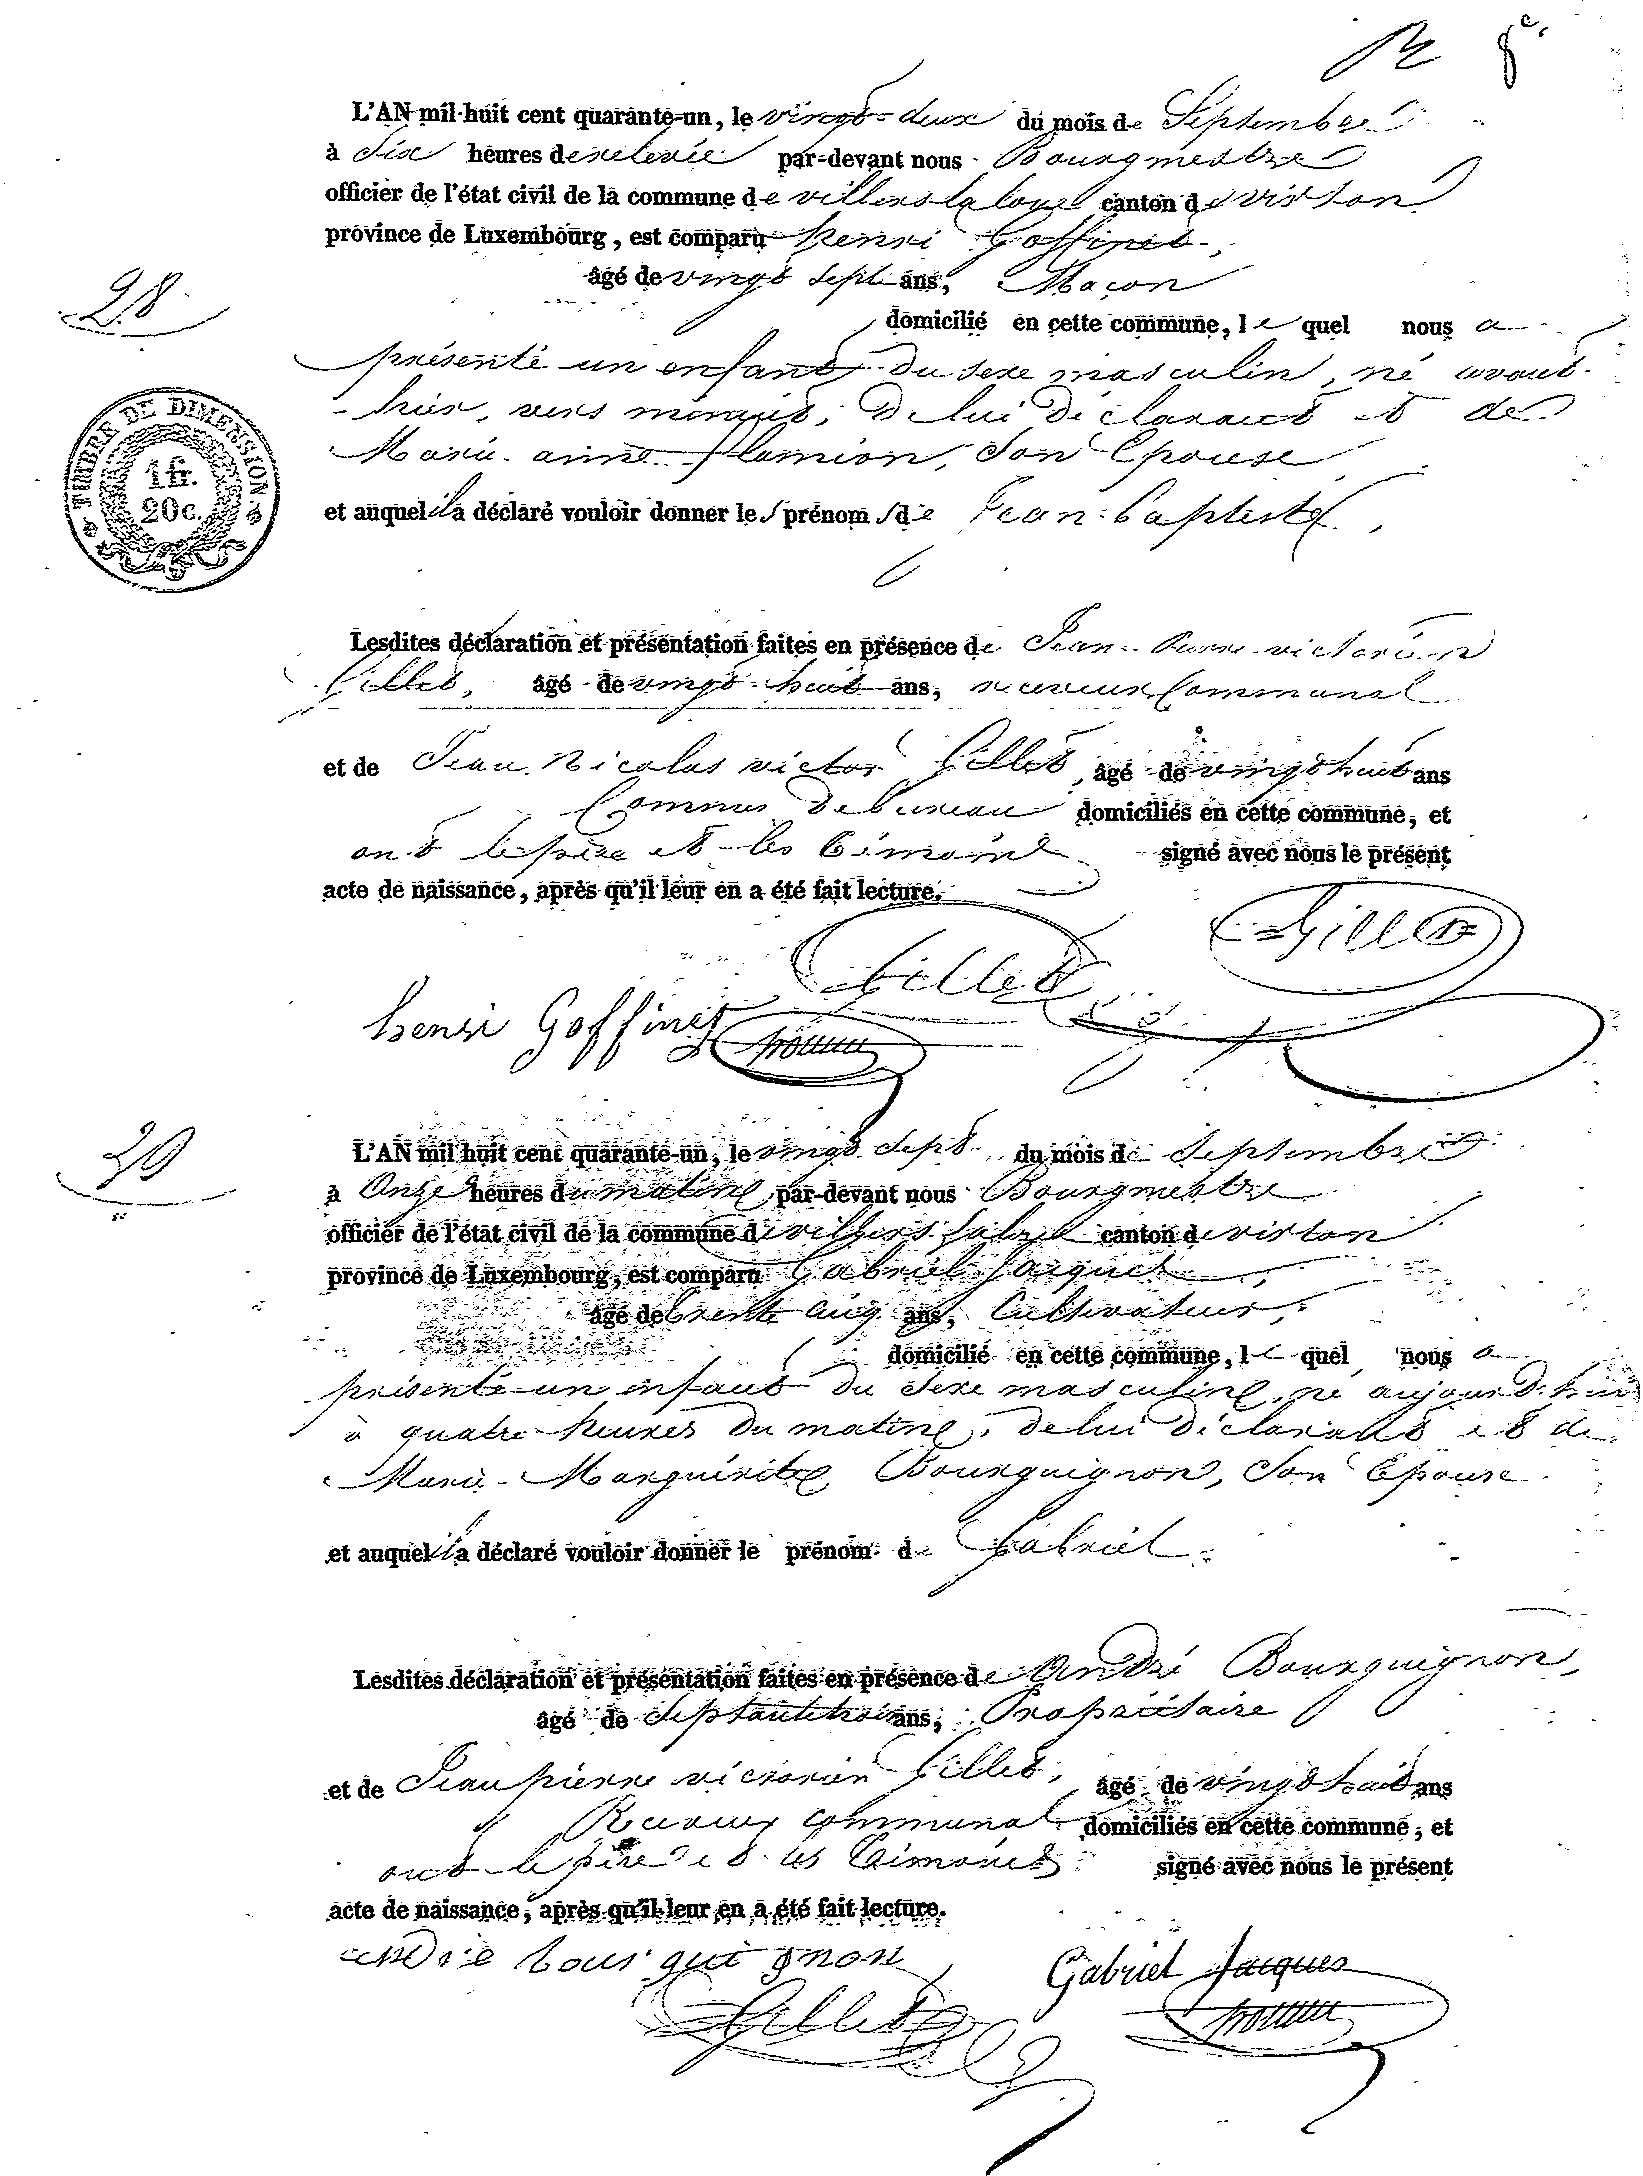 8e.
L'AN mil huit cent quarante-un, le vingt-deux du mois de Septembre
à Six heures de relevée par-devant nous Bourgmestre
officier de l'état civil de la commune de villers la loue canton de virton
province de Luxembourg, est comparu henri Goffinet,
âgé de vingt sept ans, Maçon
28
domicilié en cette commune, le quel nous a
présenté un enfant du sexe masculin, né avant-
-hier, vers minuit, de lui déclarant et de
Marie anne flamion, Son Epouse
TIMBRE DE DIMENSION
1 fr.
20 c.
et auquel il a déclaré vouloir donner les prénoms de Jean-Baptiste,
Lesdites déclaration et présentation faites en présence de Jean-Pierre victorien
Gillet, âgé de vingt-huit ans, receveur Communal
et de Jean Nicolas victor Gillet, âgé de vingt huit ans
Commis de bureau domiciliés en cette commune, et
ont le père et les témoins signé avec nous le présent
acte de naissance, après qu'il leur en a été fait lecture.
Gillet
Gillet
henri Goffinet
29
L'AN mil huit cent quarante-un, le vingt Sept du mois de Septembre
à Onze heures du matin par-devant nous Bourgmestre
officier de l'état civil de la commune de villers laloue canton de virton
province de Luxembourg, est comparu Gabriel Jacques,
âgé de trente cinq ans, Cultivateur,
domicilié en cette commune, le quel nous a
présenté un enfant du Sexe masculin, né aujourd'hui
à quatre heures du matin, de lui déclarant et de
Marie-Marguérite Bourguignon, Son Epouse
et auquel il a déclaré vouloir donner le prénom de Gabriel
Lesdites déclaration et présentation faites en présence de André Bourguignon,
âgé de Septante trois ans, Propriétaire
et de Jean pierre victorien Gillet, âgé de vingt huit ans
Receveur communal domiciliés en cette commune, et
ont le père et les témoins signé avec nous le présent
acte de naissance, après qu'il leur en a été fait lecture.
andre bour gui gnon
Gabriel Jacques
Gillet